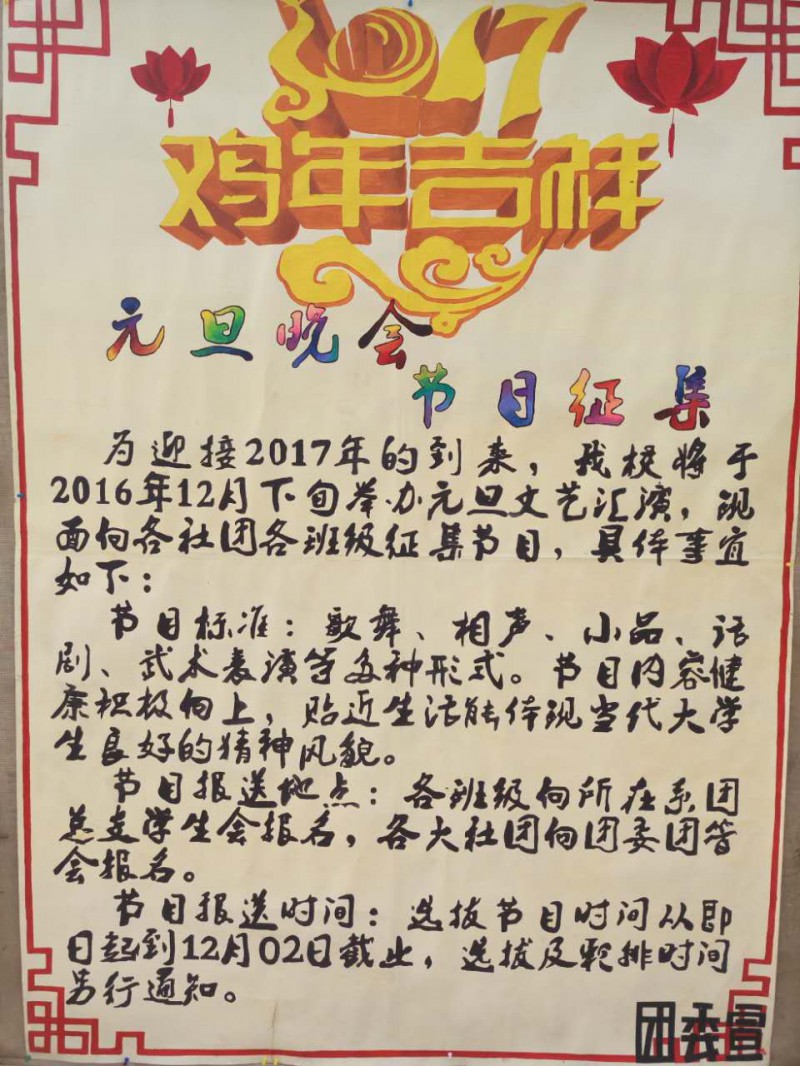 2017
鸡年吉祥
元旦晚会
节目征集
为迎接2017年的到来，我校将于
2016年12月下旬举办元旦文艺汇演，现
面向各社团各班级征集节目，具体事宜
如下：
节目标准：歌舞、相声、小品、话
剧、武术表演等多种形式。节目内容健
康积极向上，贴近生活能体现当代大学
生良好的精神风貌。
节目报送地点：各班级向所在系团
总支学生会报名，各大社团向团委团管
会报名。
节目报送时间：选拔节目时间从即
日起到12月02日截止，选拔及彩排时间
另行通知。
团委宣